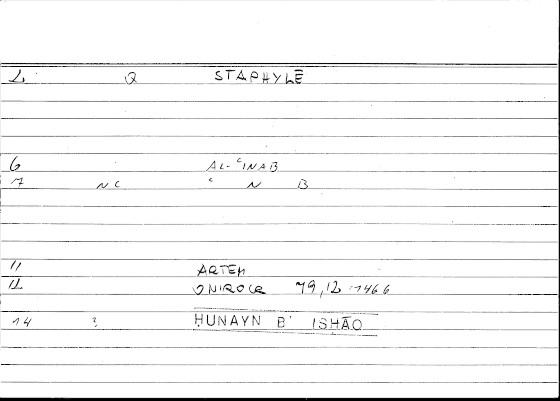 1. Q STAPHYLĒ
6 AL-ʿINAB
7 NC ʿ N B
11 ARTEM
12 ONIROCR 79,12 1466
14 ? HUNAYN B' ISHĀQ